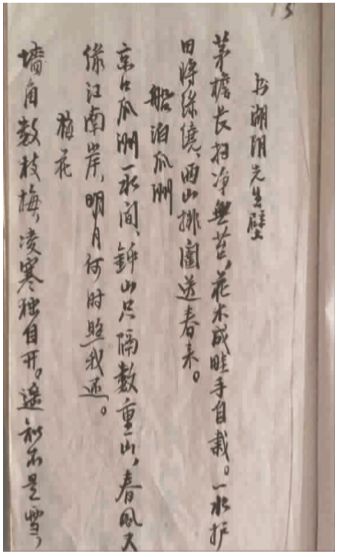 书湖阴先生壁
茅檐长扫净無苔，花木成畦手自栽。一水护
田将绿绕，西山排闼送春来。
船泊瓜洲
京口瓜洲一水间，钟山只隔数重山，春风又
绿江南岸，明月何时照我还。
梅花
墙角数枝梅，凌寒独自开。遥知不是雪，